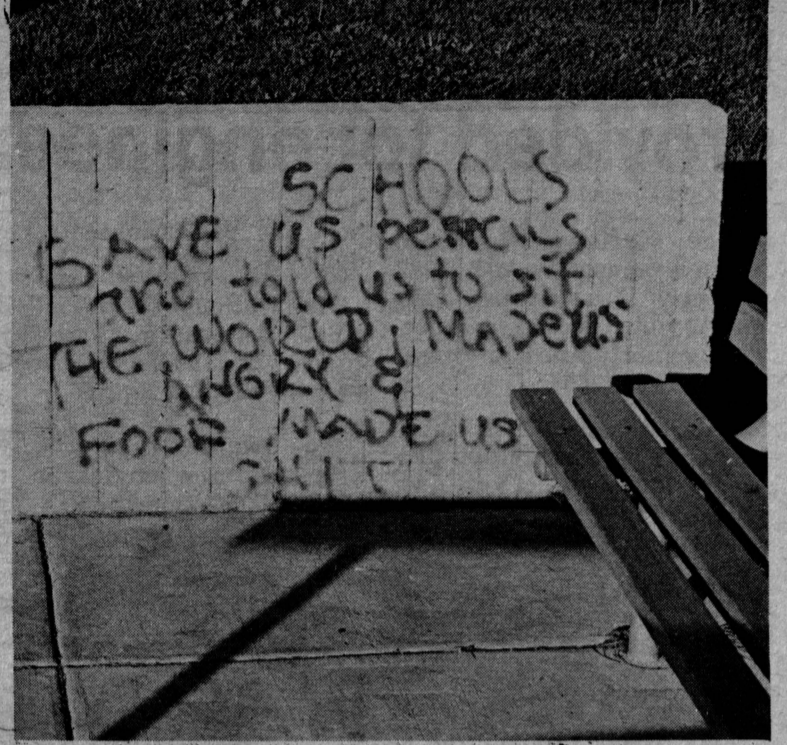 SCHOOLS
GAVE US PENCILS
AND told us to sit
THE WORLD MADE US
ANGRY &
FOOD MADE US
SHIT